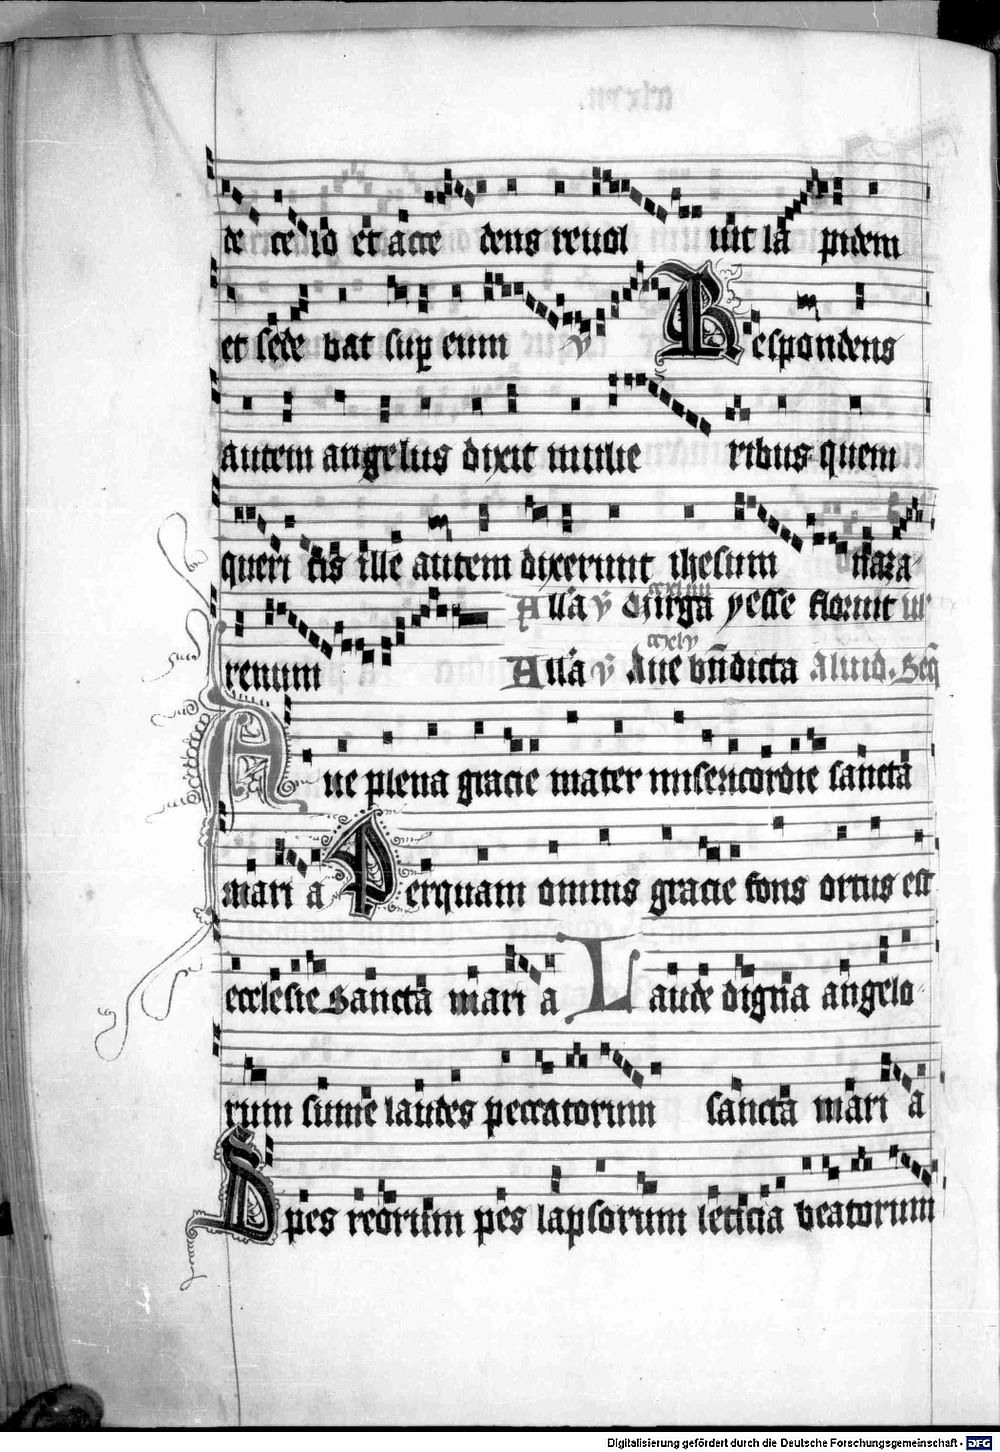 de ce lo et acce dens reuol uit la pidem
et sede bat sup eum ℣ Respondens
autem angelus dixit mulie ribus quem
queri tis ille autem dixerunt ihesum naza
renum Alla ℣ Uirga yesse floruit
Alla ℣ Aue bn̄dicta Aliud. Seq̄
Aue plena gracie mater misericordie sancta
mari a Perquam omnis gracie fons ortus est
ecclesie Sancta mari a Laude digna angelo
rum sume laudes peccatorum sancta mari a
Spes reorum spes lapsorum leticia beatorum
Digitalisierung gefördert durch die Deutsche Forschungsgemeinschaft - DFG